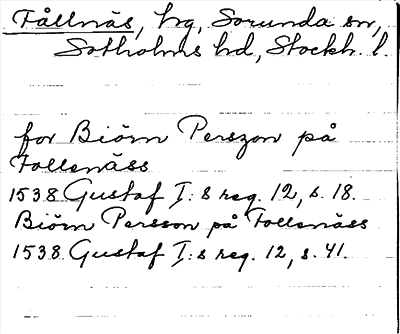 Fållnäs, hg, Sorunda sn,
Sotholms hd, Stockh. l.
for Biörn Perszon på
Follenäss
1538 Gustaf I:s reg. 12, s. 18.
Biörn Persson på Follenäss
1538 Gustaf I:s reg. 12, s. 41.